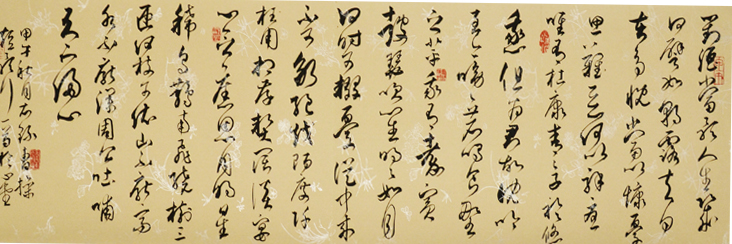 對酒當歌人生幾
何譬如朝露去日
苦多慨當以慷憂
思難忘何以解憂
唯有杜康青青子衿悠
悠我心但為君故沈吟
至今呦呦鹿鳴食野
之苹我有嘉賓
鼓瑟吹笙明明如月
何時可掇憂從中來
不可斷絕越陌度阡
枉用相存契闊談宴
心念舊恩月明星
稀烏鵲南飛繞樹三
匝何枝可依山不厭高
水不厭深周公吐哺
天下歸心
甲午秋月右錄曹操
短歌行一首於